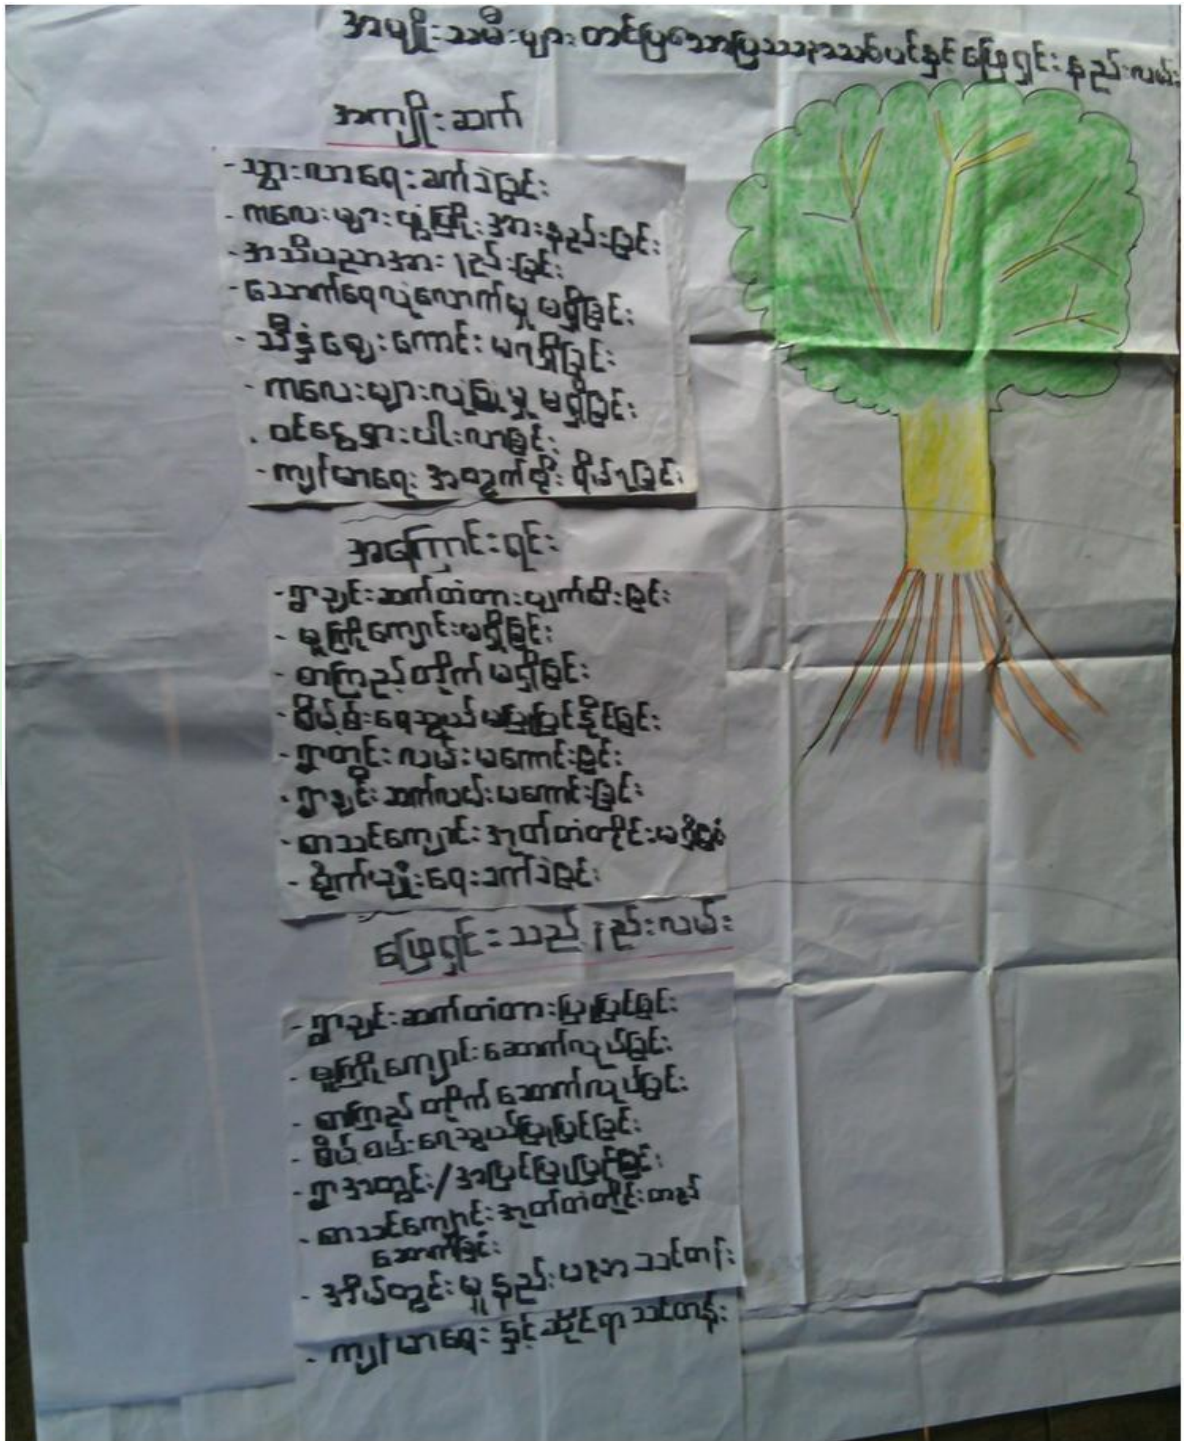 အမျိုးသမီးများ တင်ပြသောပြဿနာသစ်ပင်နှင့် ဖြေရှင်းနည်းလမ်း
အကျိုးဆက်
- သွားလာရေးခက်ခဲခြင်း
- ကလေးများဖွံ့ဖြိုးအားနည်းခြင်း
- အသိပညာအားနည်းခြင်း
- သောက်ရေလုံလောက်မှု မရှိခြင်း
- သီးနှံဈေးကောင်း မရရှိခြင်း
- ကလေးများလုံခြုံမှု မရှိခြင်း
- ဝင်ငွေရှားပါးလာခြင်း
- ကျန်းမာရေး အတွက်စိုးရိမ်ရခြင်း
အကြောင်းရင်း
- ရွာချင်းဆက်တံတားပျက်စီးခြင်း
- မူကြိုကျောင်းမရှိခြင်း
- စာကြည့်တိုက်မရှိခြင်း
- စိမ့်စမ်းရေသွယ်မပြုပြင်နိုင်ခြင်း
- ရွာတွင်းလမ်းမကောင်းခြင်း
- ရွာချင်းဆက်လမ်းမကောင်းခြင်း
- စာသင်ကျောင်းအုတ်တံတိုင်းမရှိခြင်း
- စိုက်ပျိုးရေးခက်ခဲခြင်း
ဖြေရှင်းသည့်နည်းလမ်း
- ရွာချင်းဆက်တံတားပြုပြင်ခြင်း
- မူကြိုကျောင်းဆောက်လုပ်ခြင်း
- စာကြည့်တိုက်ဆောက်လုပ်ခြင်း
- စိမ့်စမ်းရေသွယ်ပြုပြင်ခြင်း
- ရွာအတွင်း/အပြင်ပြုပြင်ခြင်း
- စာသင်ကျောင်းအုတ်တံတိုင်း
ဆောက်ခြင်း
- အိမ်တွင်းမှုနည်းပညာသင်တန်း
- ကျန်းမာရေးနှင့်ဆိုင်ရာသင်တန်း